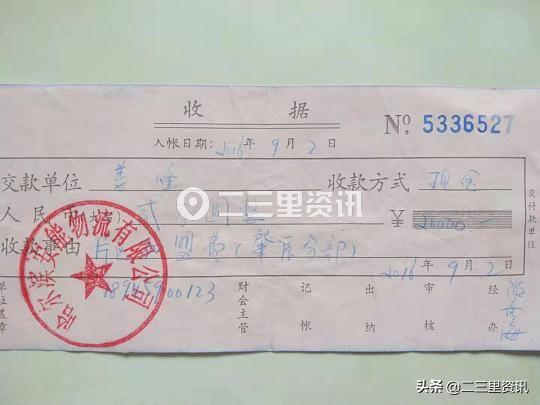 收 据
№ 5336527
入帐日期: 2016年 9月 2日
交款单位 姜 收款方式 现金
人民币(大写) 贰 ¥ 20000.—
收款事由 盟费(肇东分部)
2016年 9月 2日
18945900123
财会主管 记帐 出纳 审核 经办
单位盖章
交付款单位
哈尔滨安能物流有限公司
二三里资讯
头条 @二三里资讯